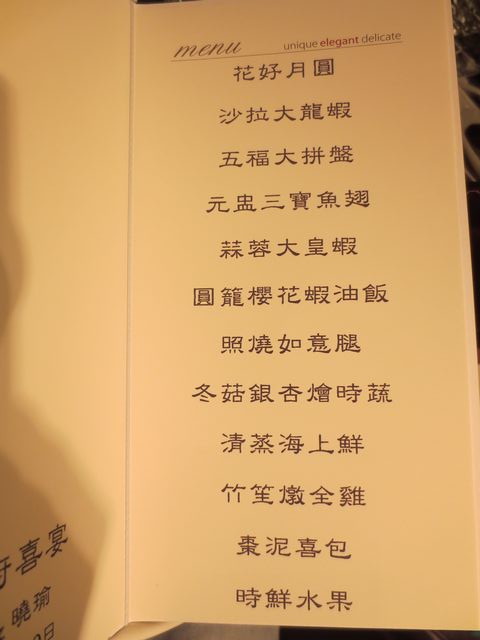 menu
unique elegant delicate
花好月圓
沙拉大龍蝦
五福大拼盤
元盅三寶魚翅
蒜蓉大皇蝦
圓籠櫻花蝦油飯
照燒如意腿
冬菇銀杏燴時蔬
清蒸海上鮮
竹笙燉全雞
棗泥喜包
時鮮水果
府喜宴
曉瑜
日